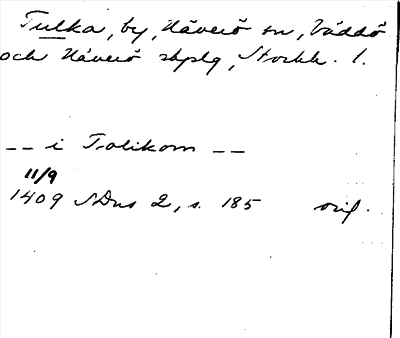 Tulka, by, Häverö sn, Väddö
och Häverö skplg, Stockh. l.
-- i Tolikom --
11/9
1409 SDns 2, s. 185 orig.